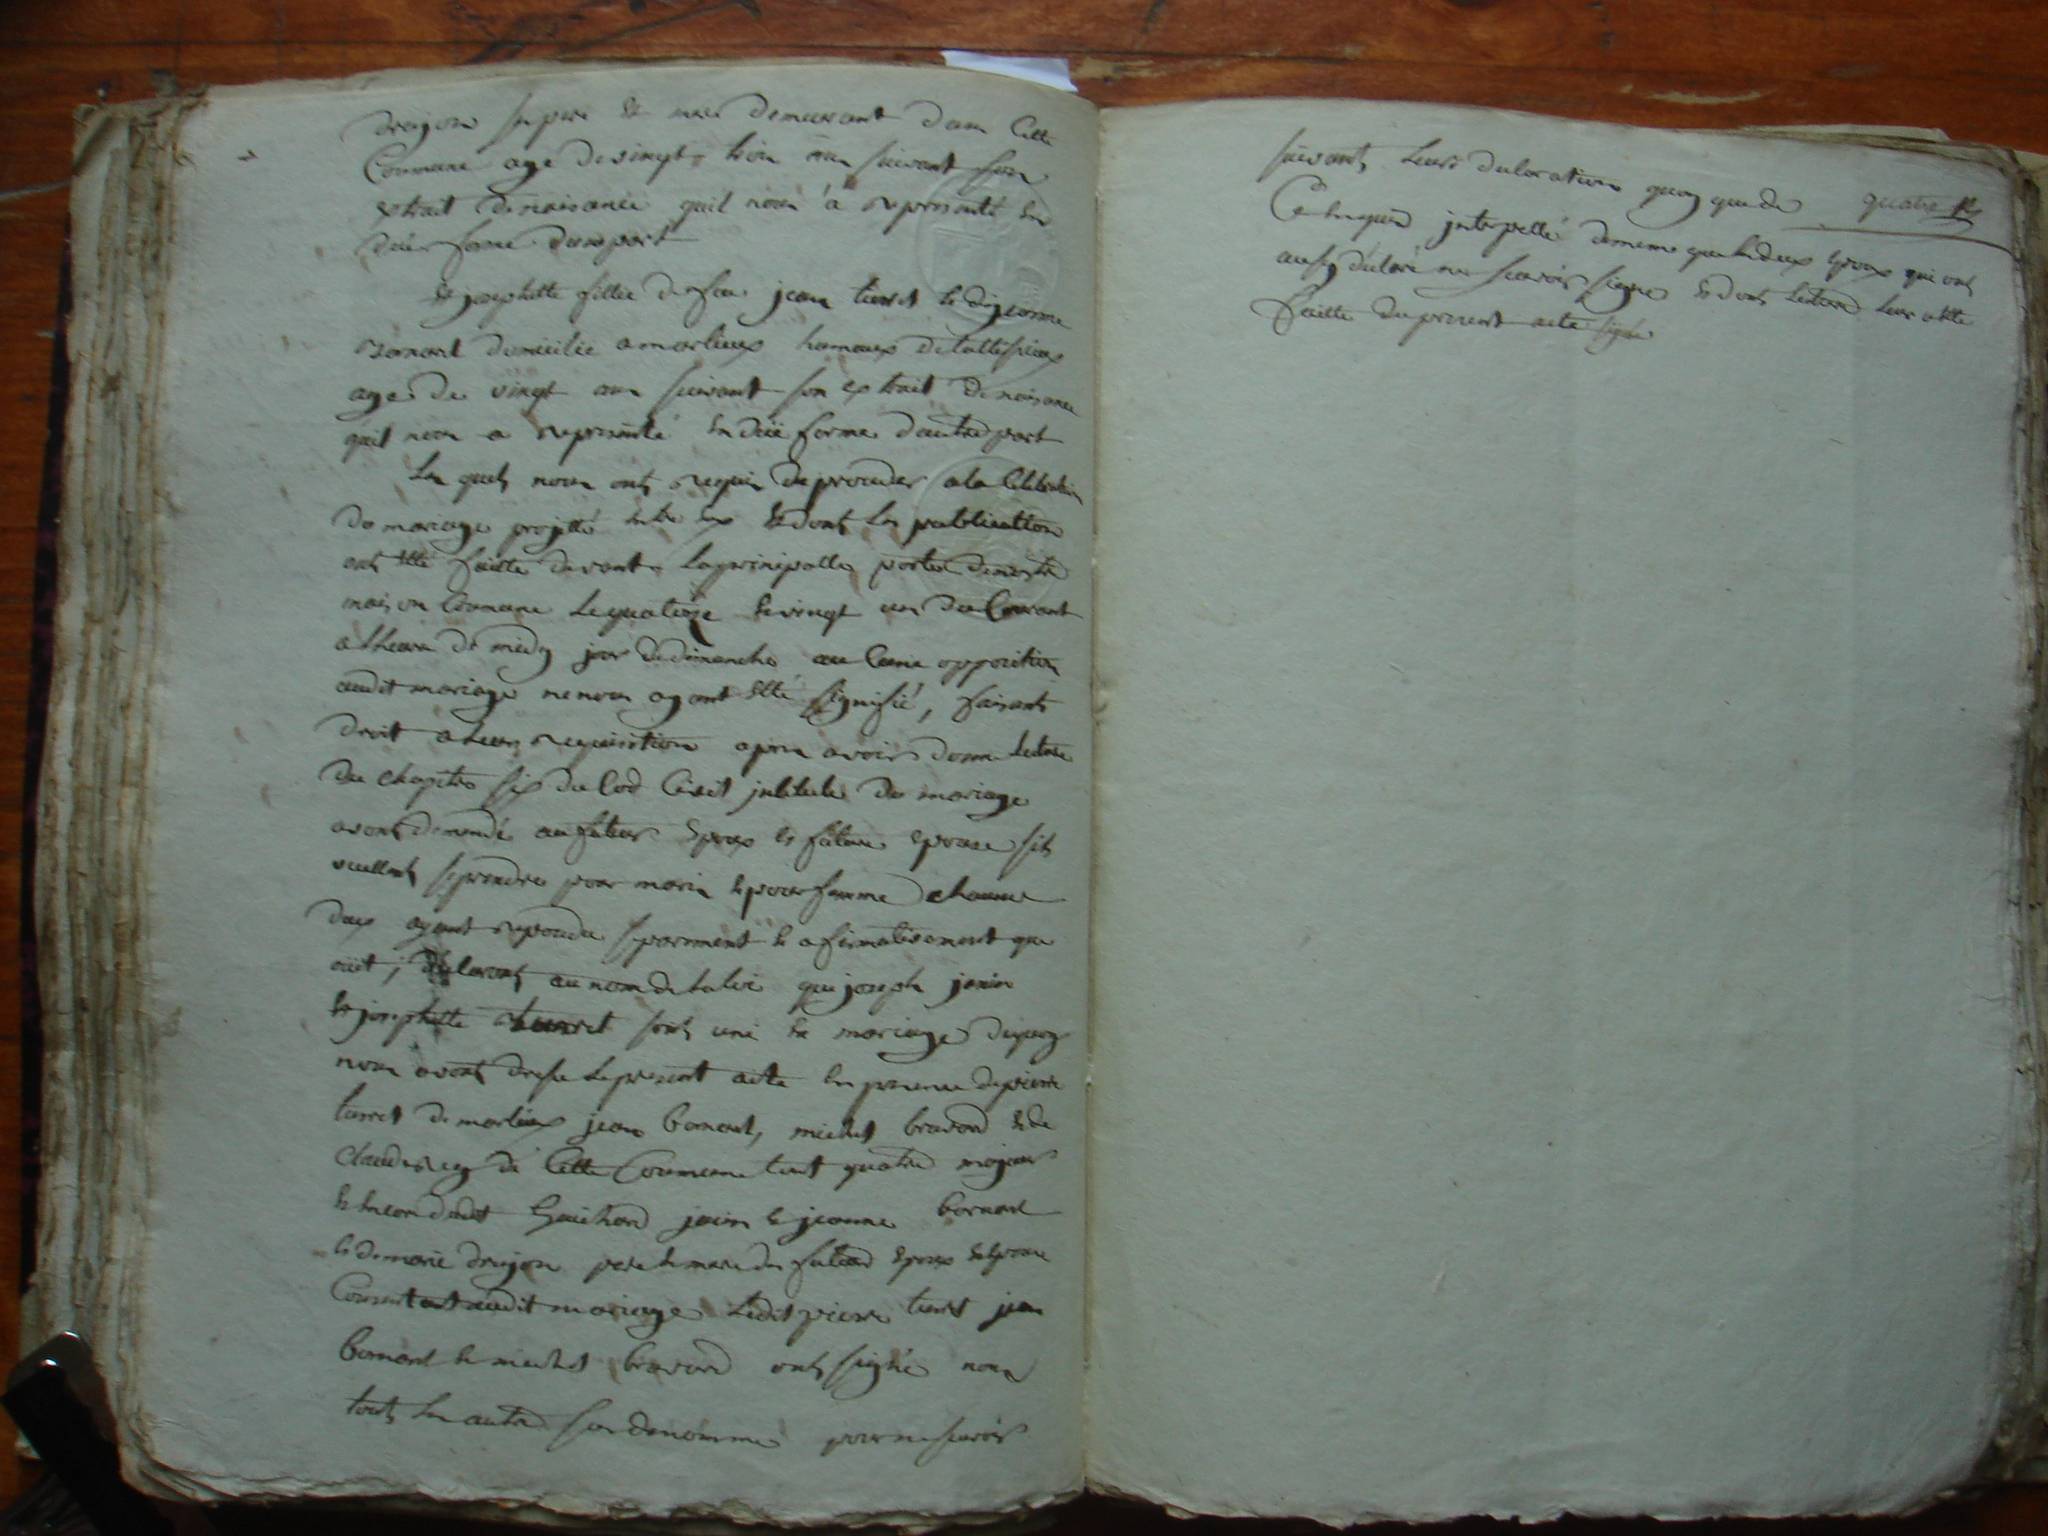 drujon ses pere et mere demeurant dans cette
Commune age de vingt trois ans suivant son
extrait de naisance quil nous à represanté en
düe forme dunepart
et josephette fillie de feu jean turret et de jeanne
domicilie a morlieux hamaux de
age de vingt ans suivant son extrait de naisance
quil nous a represanté en düe forme dautre part
Les quels nous onts requis de proceder a la Celebration
du mariage projetté entre eux et donts les publication
onts etté faitte devant la principalle porte de nostre
maison Commune le quatorze et vingt un du Courant
a lheure de midy jour de dimanche aucune opposition
audit mariage ne nous ayant etté signifié, faisants
droit a leurs requisition apres avoir donné lecture
du chapitre six du Cod Civil intitulé du mariage
avons demandé au futeur epoux et future epouse sils
veullents se prendre pour maris et pour famme chacune
deux ayant repondu separement et afirmativement que
oüit, declarons au nom de la loi que joseph janin
et josephette turret sonts uni en mariage dequoy
nous avons dressé le present acte en presence de pierre
turret de morlieux jean bornard, michel bravard et de
claude rey de cette Commune tout quatre majeur
et en Con janin et jeanne bornard
et de marie drujon pere et mere des futeur epoux et epouse
Consentant audit mariage ledit pierre turret jean
bornard et michel bravard onts signé nous
touts les autre susdenommé pour ne scavoir
suivants leurs declaration quoy que de quatre
Ce enquis interpellé de meme que les deux epoux qui ont
aussy déclaré ne scavoir signer et donts lecture leur a etté
faitte du present acte signé